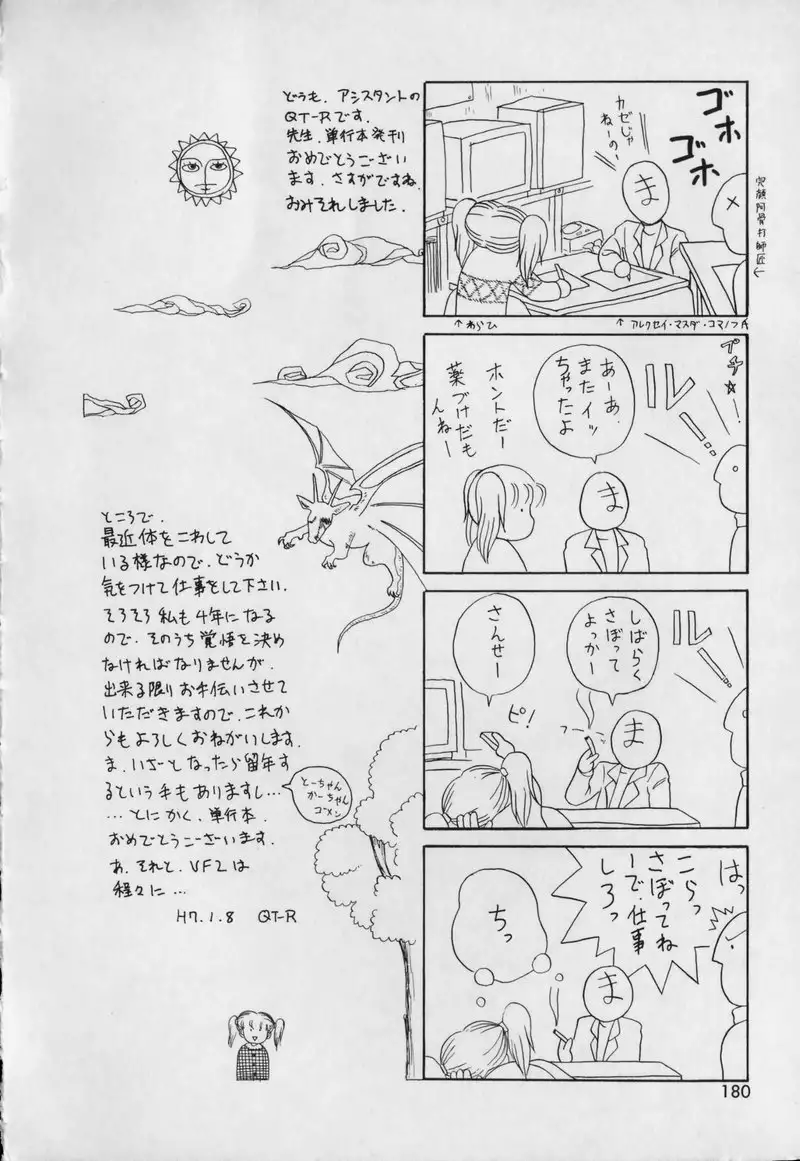 どうも、アシスタントの
QT-Rです.
先生、単行本発刊
おめでとうござい
ます、さすがですね.
おみそれしました.
ゴホ
ゴホ
カゼじゃ
ねーの?
ま
↑わらひ
↑アルクセイ・マスダ・コマノフ氏
プチ☆
ルー!
あーあ.
またイッ
ちゃったよ
ホントだー
薬づけだも
んねー
ま
ルー!
しばらく
さぼって
よっかー
さんせー
ピ!
フー
ま
はっ
こらっ
さぼってね
ーで、仕事
しろっ
ちっ
ま
ところで、
最近体をこわして
いる様なので、どうか
気をつけて仕事をして下さい.
そろそろ私も4年になる
ので、そのうち覚悟を決め
なければなりませんが、
出来る限りお手伝いさせて
いただきますので、これか
らもよろしくおねがいします.
ま、いざとなったら留年す
るという手もありますし…
とーちゃん
かーちゃん
ゴメン
…とにかく、単行本、
おめでとうございます.
あ、それと、VF2は
程々に…
H7.1.8 QT-R
180